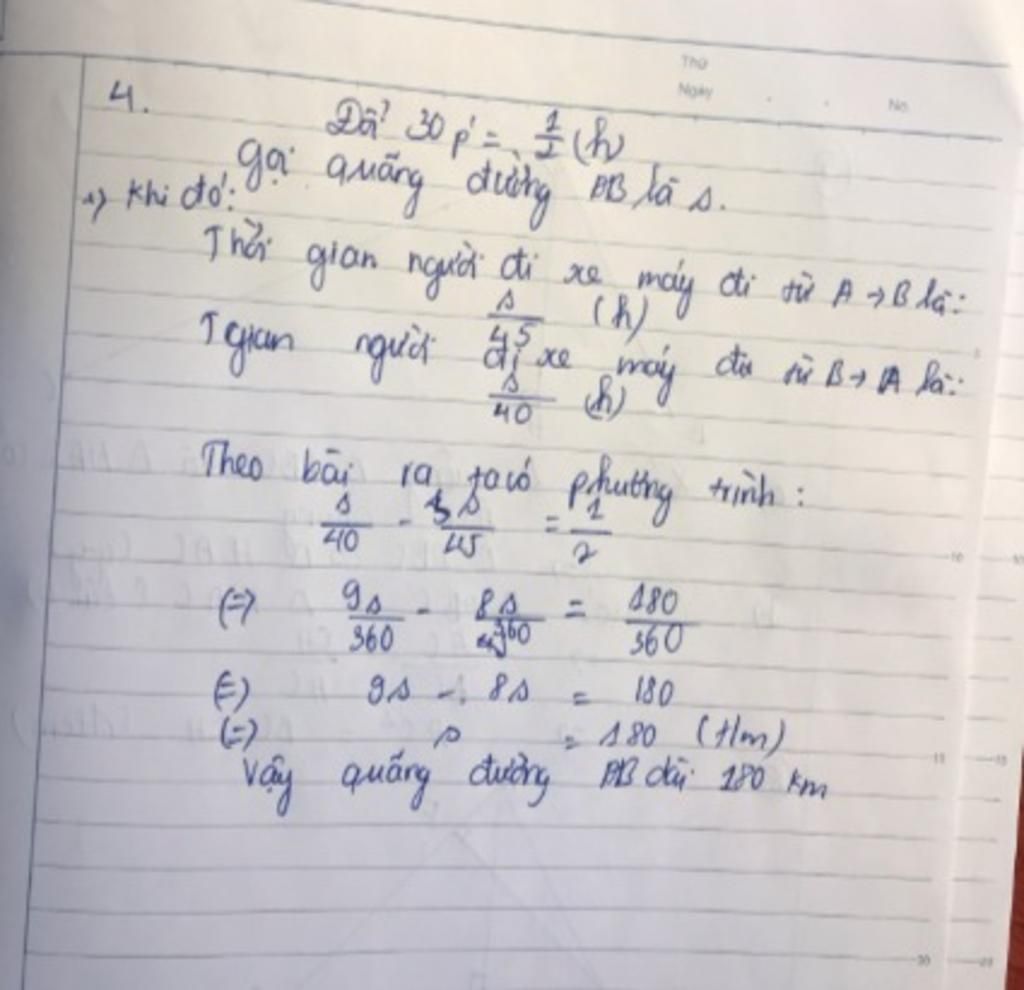 Thứ
Ngày . . No
4.
Đổi 30 p' = 1/2 (h)
Gọi quãng đường AB là s.
=> Khi đó:
Thời gian người đi xe máy đi từ A → B là:
s/45 (h)
Tgian người đi xe máy đi từ B → A là:
s/40 (h)
Theo bài ra ta có phương trình:
s/40 - s/45 = 1/2
(=) 9s/360 - 8s/360 = 180/360
(=) 9s - 8s = 180
(=) s = 180 (t/m)
Vậy quãng đường AB dài 180 km